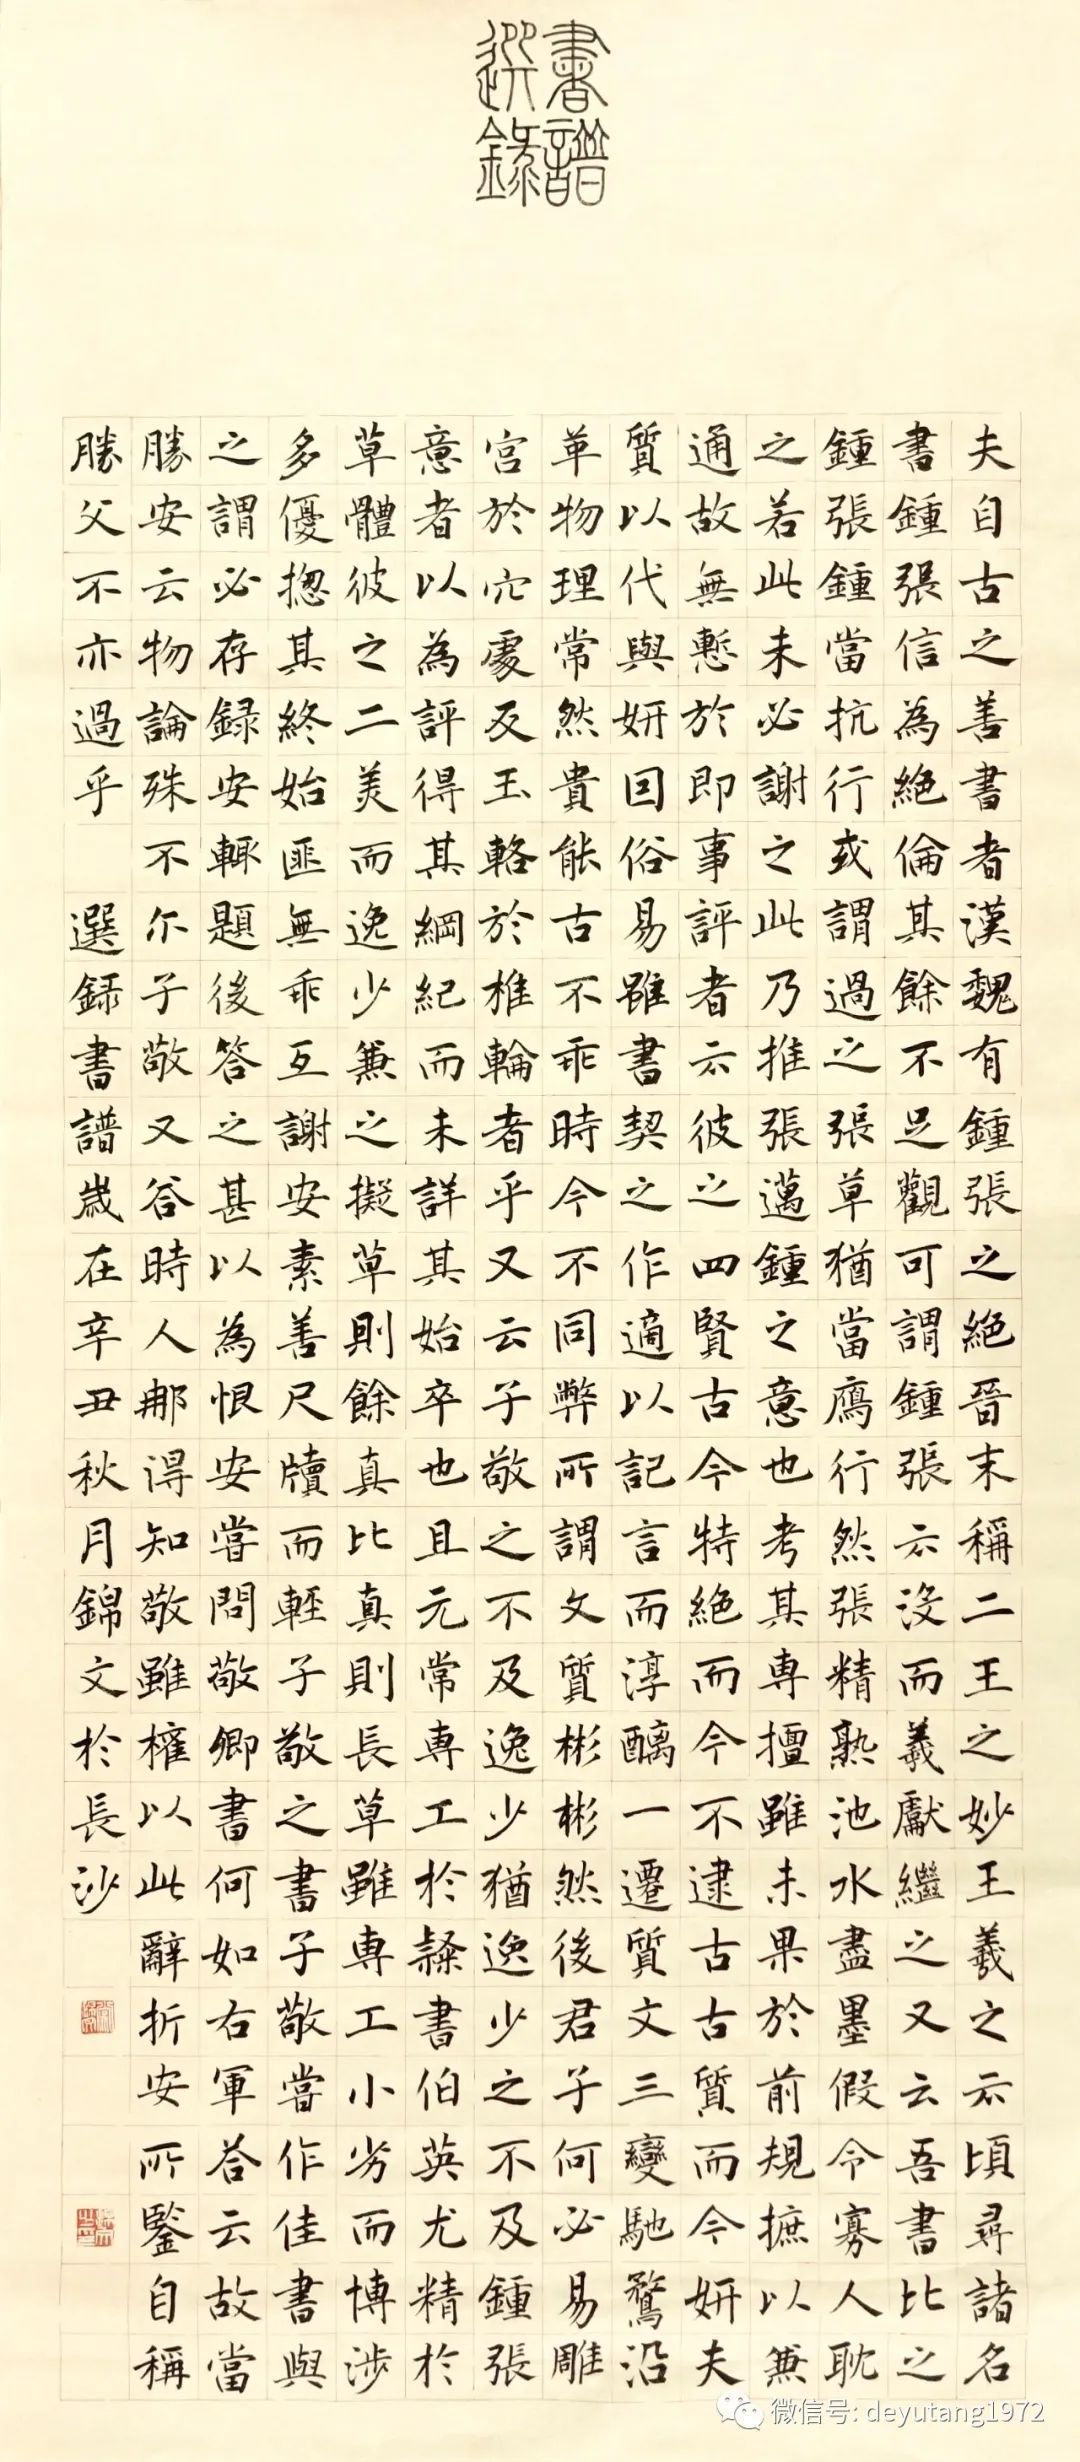 書譜
選錄
夫自古之善書者漢魏有鍾張之絕晉末稱二王之妙王羲之云頃尋諸名
書鍾張信為絕倫其餘不足觀可謂鍾張云沒而羲獻繼之又云吾書比之
鍾張鍾當抗行或謂過之張草猶當鴈行然張精熟池水盡墨假令寡人耽
之若此未必謝之此乃推張邁鍾之意也考其專擅雖未果於前規摭以兼
通故無慙於即事評者云彼之四賢古今特絕而今不逮古古質而今妍夫
質以代興妍因俗易雖書契之作適以記言而淳醨一遷質文三變馳鶩沿
革物理常然貴能古不乖時今不同弊所謂文質彬彬然後君子何必易雕
宮於穴處反玉輅於椎輪者乎又云子敬之不及逸少猶逸少之不及鍾張
意者以為評得其綱紀而未詳其始卒也且元常專工於隸書伯英尤精於
草體彼之二美而逸少兼之擬草則餘真比真則長草雖專工小劣而博涉
多優揔其終始匪無乖互謝安素善尺牘而輕子敬之書子敬嘗作佳書與
之謂必存録安輒題後答之甚以為恨安嘗問敬卿書何如右軍答云故當
勝安云物論殊不尒子敬又答時人那得知敬雖權以此辭折安所鑒自稱
勝父不亦過乎 選録書譜歲在辛丑秋月錦文於長沙
微信号: deyutang1972